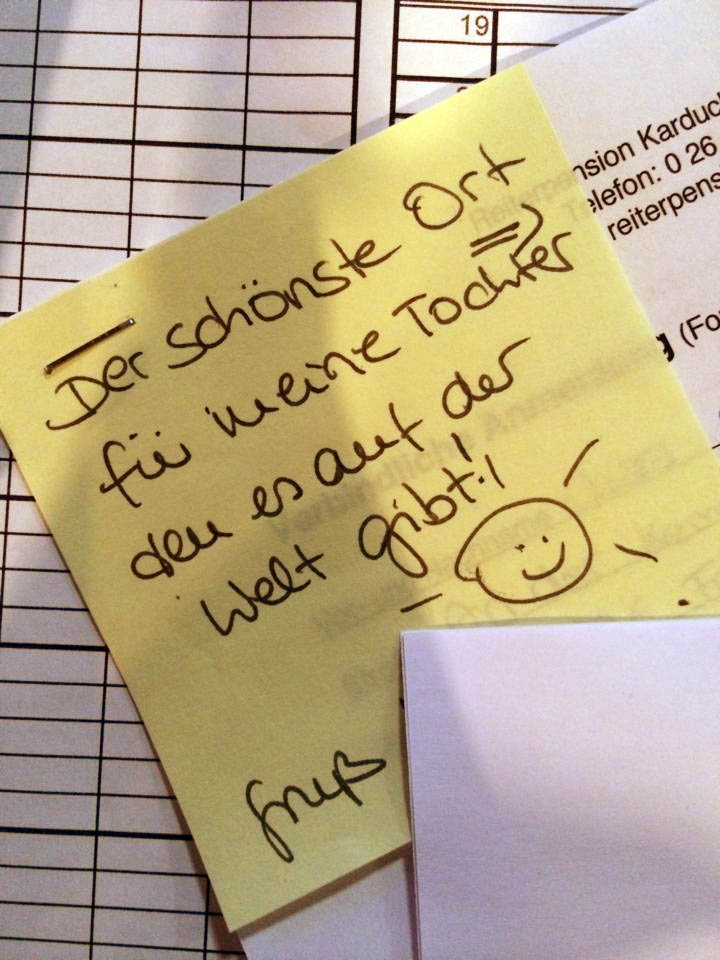 19
nsion Karduck
Telefon: 0 26
reiterpens
(Fo
Der schönste Ort
für meine Tochter
den es auf der
Welt gibt!!
Gruß
Verbindliche Anmeldung